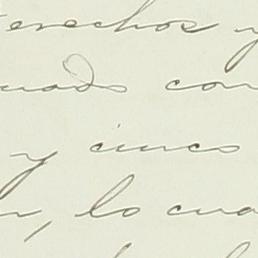 derechos y
uado con
y cinco
, lo cua